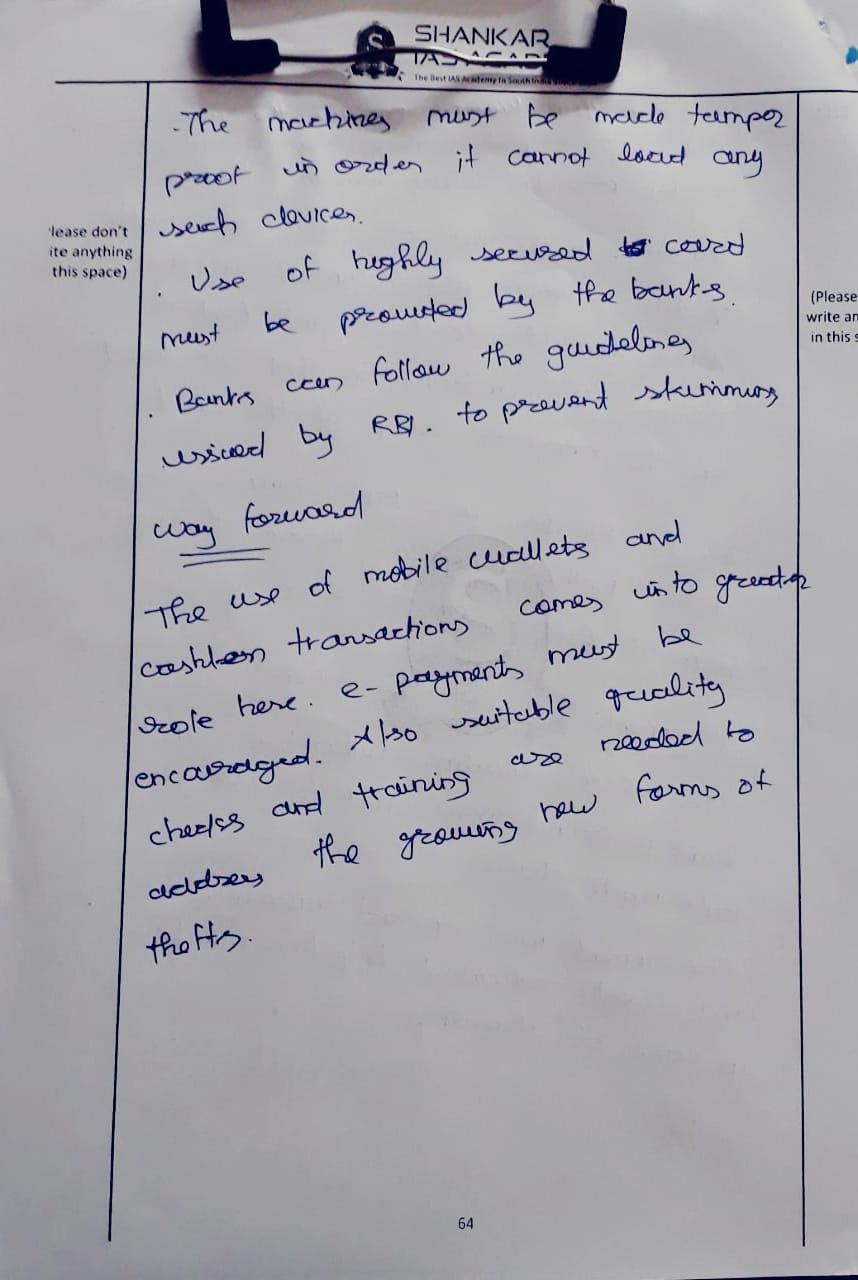 SHANKAR
IAS ACAD
The Best IAS Academy In South India
.The machines must be made tamper
proof in order it cannot load any
such devices.
. Use of highly secured card
must be promoted by the banks.
. Banks can follow the guidelines
issued by RBI. to prevent skimming
way forward
The use of mobile wallets and
cashless transactions comes into greater
role here. e-payments must be
encouraged. Also suitable quality
checks and training are needed to
address the growing new forms of
thefts.
lease don't
ite anything
this space)
(Please
write an
in this s
64